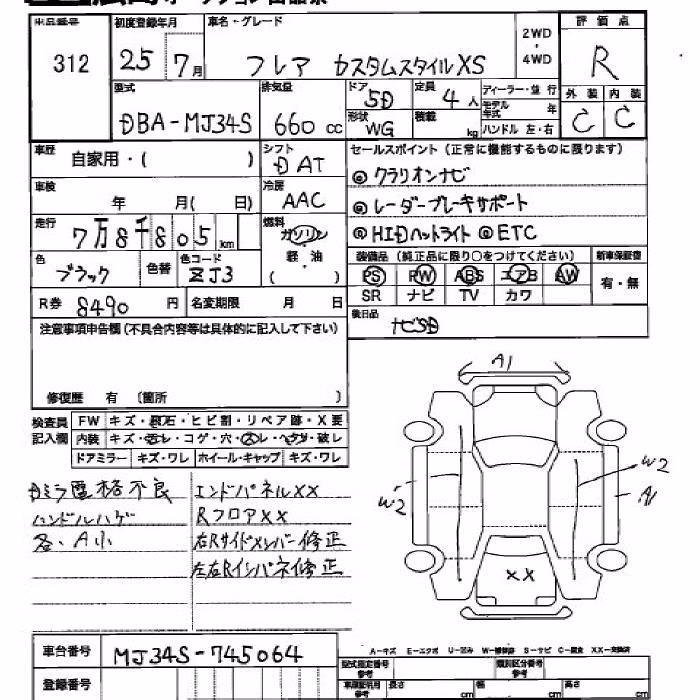 出品番号 初度登録年月 車名・グレード 2WD ・ 4WD 評価点
312 25 7月 フレア カスタムスタイルXS R
型式 排気量 ドア 5D 定員 4人 ディーラー・並行 外装 内装
DBA-MJ34S 660cc 形状 WG 積載 kg モデル年式 年 ハンドル 左・右 C C
車歴 自家用・( ) シフト DAT セールスポイント(正常に機能するものに限ります)
車検 年 月( 日) 冷房 AAC
◎クラリオンナビ
◎レーダーブレーキサポート
◎HIDヘットライト ◎ETC
走行 7万8千805km 燃料 ガソリン 軽・油 ( )
色 ブラック 色替 色コード ZJ3
装備品(純正品に限り○をつけてください) 新車保証書
PS PW ABS エアB AW 有・無
SR ナビ TV カワ
R券 8490円 名変期限 月 日
後日品 ナビSD
注意事項申告欄(不具合内容等は具体的に記入して下さい)
修復歴 有 (箇所 )
検査員記入欄 FW キズ・飛石・ヒビ割・リペア跡・X要
内装 キズ・汚レ・コゲ・穴・スレ・ヘタリ・破レ
ドアミラー キズ・ワレ ホイール・キャップ キズ・ワレ
Dミラ電格不良 エンドパネルXX
ハンドルハゲ RフロアXX
各、A小 右Rサイドメンバー修正
左右Rインパネ修正
A1
W2
W2
A1
XX
A-キズ E-エクボ U-凹み W-補修跡 S-サビ C-腐食 XX-交換済
車台番号 MJ34S-745064
登録番号
型式指定番号 参考 類別区分番号 参考
長さ cm 幅 cm 高さ cm